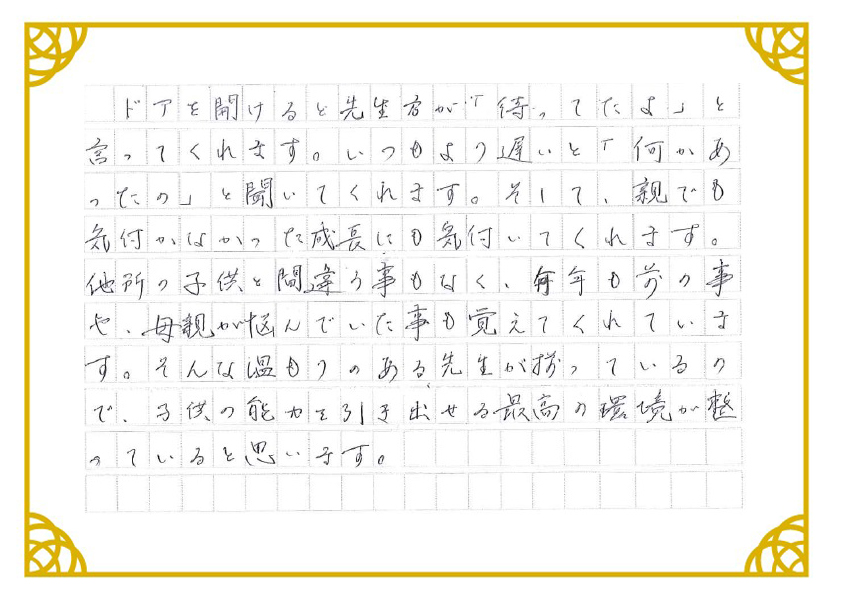 ドアを開けると先生方が「待ってたよ」と
言ってくれます。いつもより遅いと「何かあ
ったの」と聞いてくれます。そして、親でも
気付かなかった成長にも気付いてくれます。
他所の子供と間違う事もなく、何年も前の事
や、母親が悩んでいた事も覚えてくれていま
す。そんな温もりのある先生が揃っているの
で、子供の能力を引き出せる最高の環境が整
っていると思います。